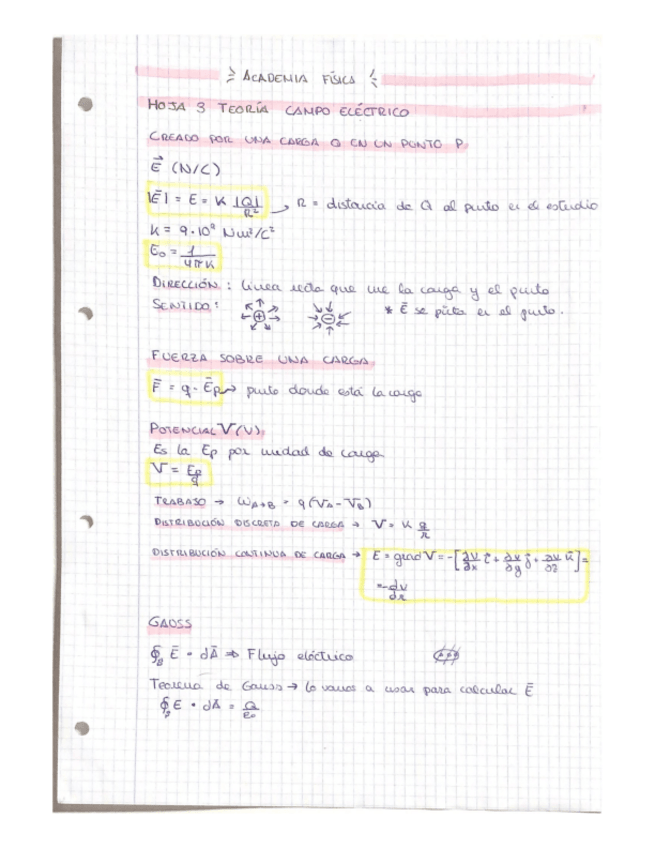 ACADEMIA FÍSICA
HOJA 3 TEORÍA CAMPO ELÉCTRICO
CREADO POR UNA CARGA Q EN UN PUNTO P.
E⃗ (N/C)
|E̅| = E = K |Q|/R² → R = distancia de Q al punto en el estudio
K = 9·10⁹ Nm²/C²
E₀ = 1/4πK
DIRECCIÓN: línea recta que une la carga y el punto
SENTIDO: + − * E̅ se pinta en el punto.
FUERZA SOBRE UNA CARGA
F̅ = q · E̅p → punto donde está la carga
POTENCIAL V (V)
Es la Ep por unidad de carga
V = Ep/q
TRABAJO → W A→B = q (VA - VB)
DISTRIBUCIÓN DISCRETA DE CARGA → V = K q/r
DISTRIBUCIÓN CONTINUA DE CARGA → E = grad V = -[∂V/∂x i̅ + ∂V/∂y j̅ + ∂V/∂z k̅] =
= -dV/dr
GAUSS
∮ E̅ · dA̅ ⇒ Flujo eléctrico
Teorema de Gauss → lo vamos a usar para calcular E̅
∮ E · dA̅ = Q/ε₀